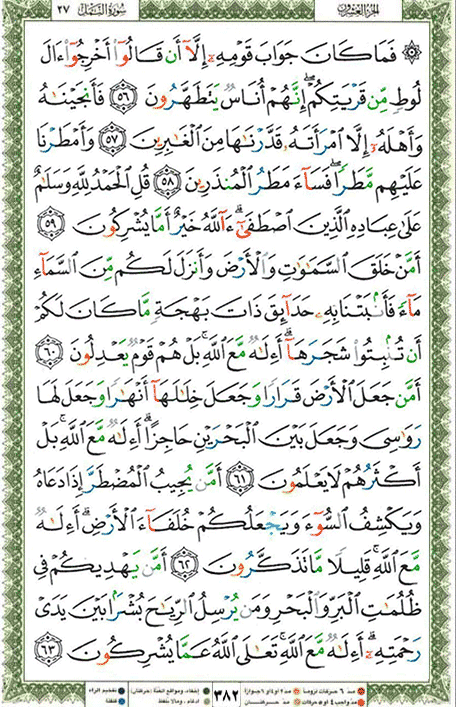 الجزء العشرون ٢٧ سورة النمل
۞ فَمَا كَانَ جَوَابَ قَوْمِهِۦٓ إِلَّآ أَن قَالُوٓا۟ أَخْرِجُوٓا۟ ءَالَ
لُوطٍ مِّن قَرْيَتِكُمْ ۖ إِنَّهُمْ أُنَاسٌ يَتَطَهَّرُونَ ٥٦ فَأَنجَيْنَـٰهُ
وَأَهْلَهُۥٓ إِلَّا ٱمْرَأَتَهُۥ قَدَّرْنَـٰهَا مِنَ ٱلْغَـٰبِرِينَ ٥٧ وَأَمْطَرْنَا
عَلَيْهِم مَّطَرًا ۖ فَسَآءَ مَطَرُ ٱلْمُنذَرِينَ ٥٨ قُلِ ٱلْحَمْدُ لِلَّهِ وَسَلَـٰمٌ
عَلَىٰ عِبَادِهِ ٱلَّذِينَ ٱصْطَفَىٰٓ ۗ ءَآللَّهُ خَيْرٌ أَمَّا يُشْرِكُونَ ٥٩
أَمَّنْ خَلَقَ ٱلسَّمَـٰوَٰتِ وَٱلْأَرْضَ وَأَنزَلَ لَكُم مِّنَ ٱلسَّمَآءِ
مَآءً فَأَنۢبَتْنَا بِهِۦ حَدَآئِقَ ذَاتَ بَهْجَةٍ مَّا كَانَ لَكُمْ
أَن تُنۢبِتُوا۟ شَجَرَهَآ ۗ أَءِلَـٰهٌ مَّعَ ٱللَّهِ ۚ بَلْ هُمْ قَوْمٌ يَعْدِلُونَ ٦٠
أَمَّن جَعَلَ ٱلْأَرْضَ قَرَارًا وَجَعَلَ خِلَـٰلَهَآ أَنْهَـٰرًا وَجَعَلَ لَهَا
رَوَٰسِىَ وَجَعَلَ بَيْنَ ٱلْبَحْرَيْنِ حَاجِزًا ۗ أَءِلَـٰهٌ مَّعَ ٱللَّهِ ۚ بَلْ
أَكْثَرُهُمْ لَا يَعْلَمُونَ ٦١ أَمَّن يُجِيبُ ٱلْمُضْطَرَّ إِذَا دَعَاهُ
وَيَكْشِفُ ٱلسُّوٓءَ وَيَجْعَلُكُمْ خُلَفَآءَ ٱلْأَرْضِ ۗ أَءِلَـٰهٌ
مَّعَ ٱللَّهِ ۚ قَلِيلًا مَّا تَذَكَّرُونَ ٦٢ أَمَّن يَهْدِيكُمْ فِى
ظُلُمَـٰتِ ٱلْبَرِّ وَٱلْبَحْرِ وَمَن يُرْسِلُ ٱلرِّيَـٰحَ بُشْرًۢا بَيْنَ يَدَىْ
رَحْمَتِهِۦٓ ۗ أَءِلَـٰهٌ مَّعَ ٱللَّهِ ۚ تَعَـٰلَى ٱللَّهُ عَمَّا يُشْرِكُونَ ٦٣
مد ٦ حركات لزوما مد ٢ او ٤ او ٦ جوازا إخفاء، ومواقع الغنة (حركتان) تفخيم الراء
مد واجب ٤ او ٥ حركات مد حركتان ادغام، ومالا يلفظ قلقلة
٣٨٢